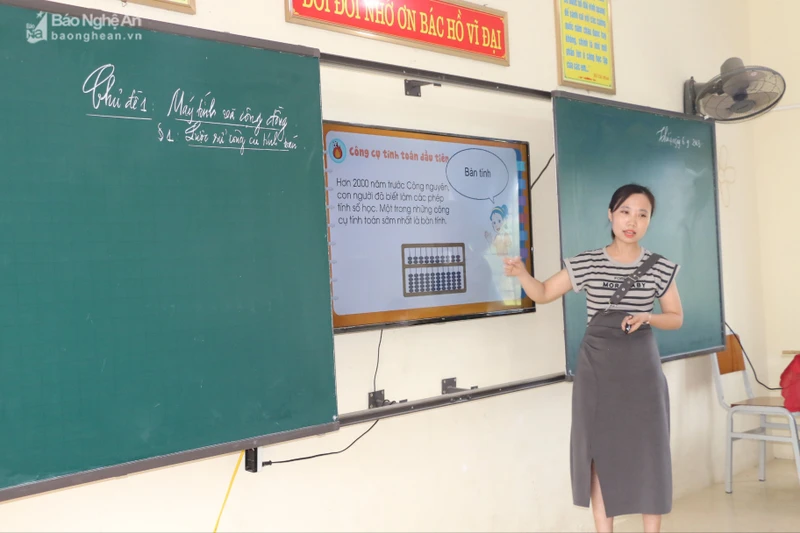 Báo Nghệ An
baonghean.vn
ĐỜI ĐỜI NHỚ ƠN BÁC HỒ VĨ ĐẠI
Chủ đề 1: Máy tính và cộng đồng
§1. Lược sử công cụ tính toán
Công cụ tính toán đầu tiên
Bàn tính
Hơn 2000 năm trước Công nguyên,
con người đã biết làm các phép
tính số học. Một trong những công
cụ tính toán sớm nhất là bàn tính.